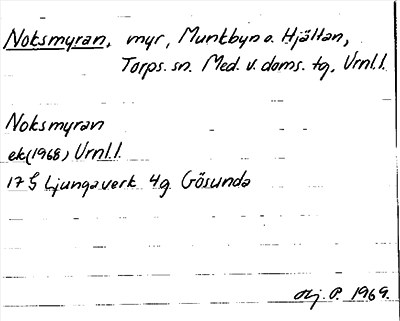 Noksmyran, myr, Munkbyn o. Hjältan,
Torps. sn. Med. v. doms. tg, Vrnl.l.
Noksmyran
ek(1968) Vrnl.l.
17 G Ljungaverk 4g Gösunda
P. 1969.